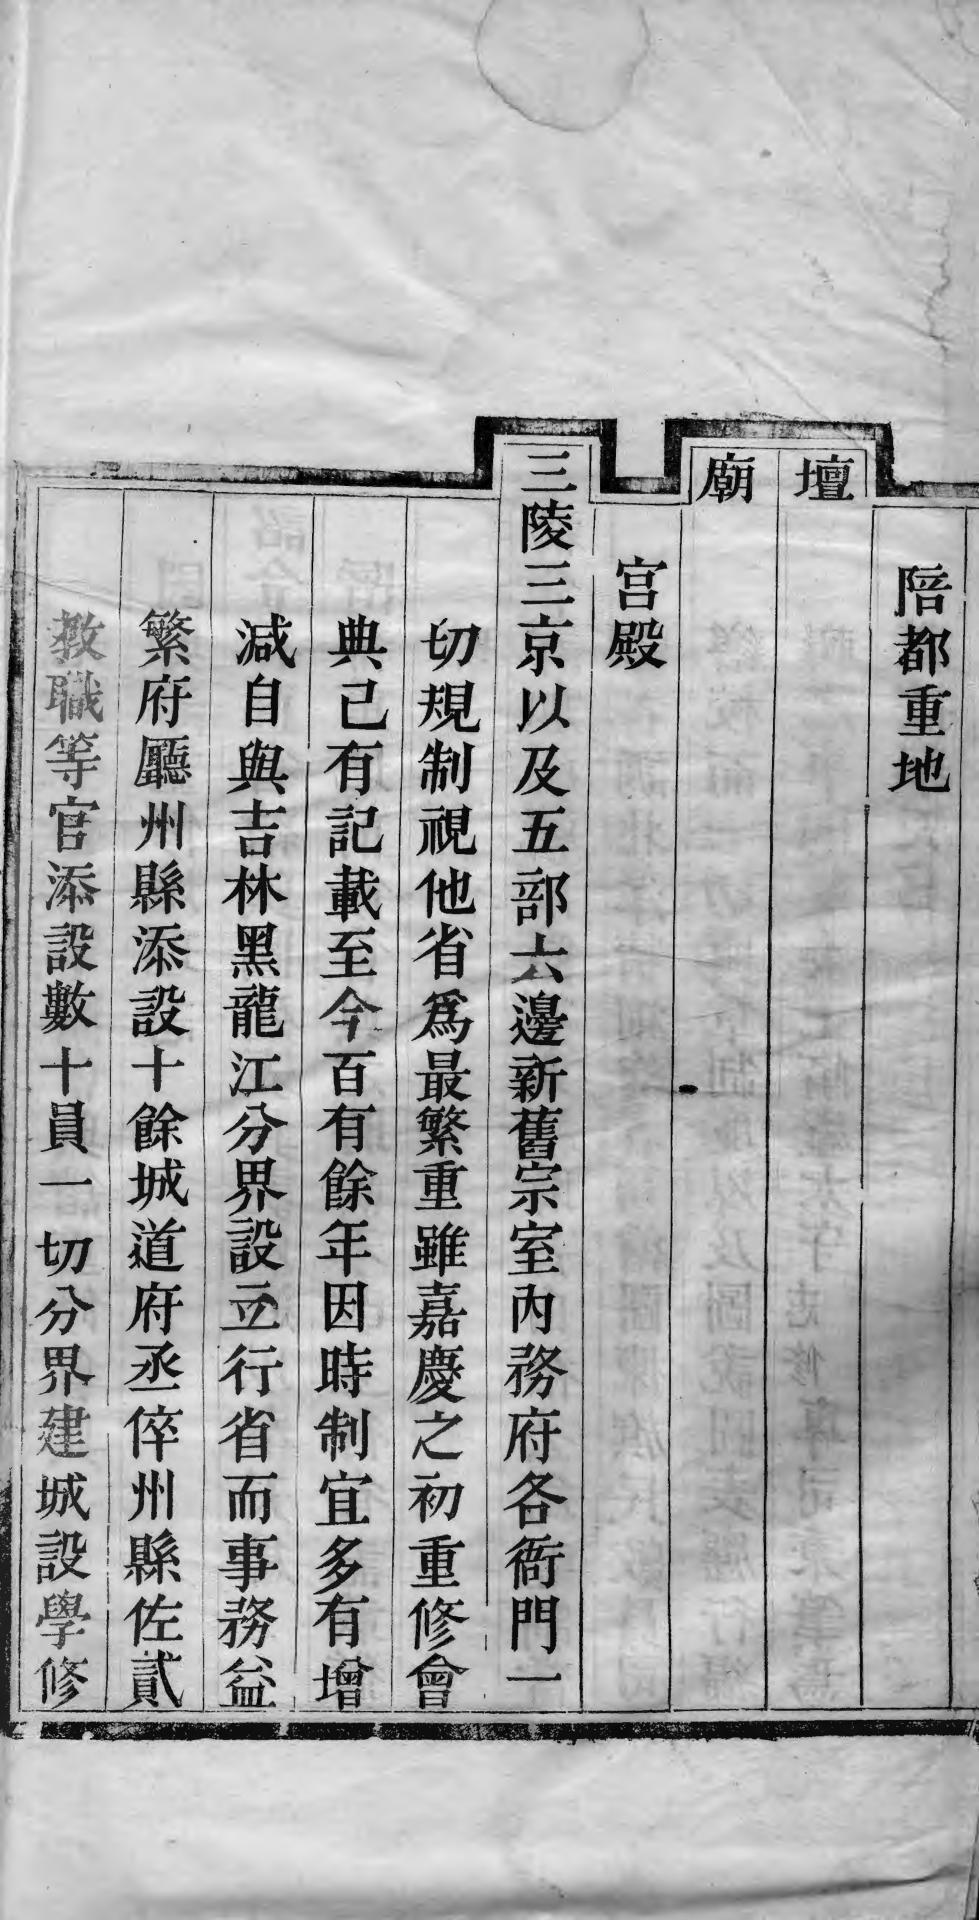 陪都重地
壇
廟
宮殿
三陵三京以及五部六邊新舊宗室內務府各衙門一
切規制視他省爲最繁重雖嘉慶之初重修會
典已有記載至今百有餘年因時制宜多有增
減自與吉林黑龍江分界設立行省而事務益
繁府廳州縣添設十餘城道府丞倅州縣佐貳
教職等官添設數十員一切分界建城設學修